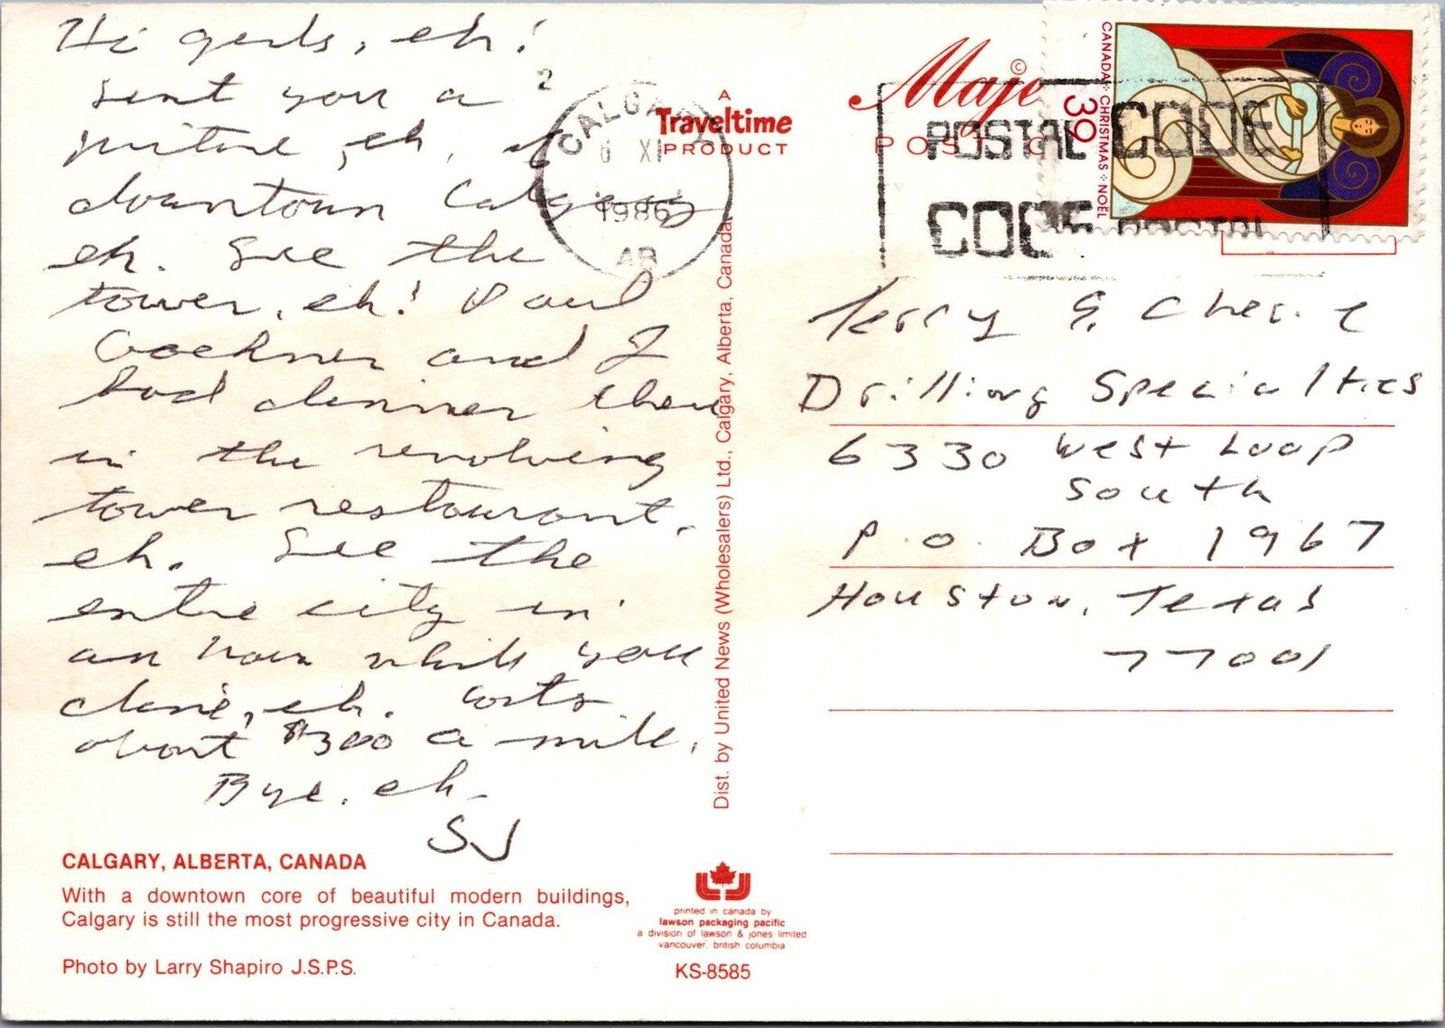 Hi gerls, eh!
Sent you a
picture, eh, of
downtown Calgary
eh. See the
tower, eh! Paul
and I
had dinner there
in the revolving
tower restaurant,
eh. See the
entire city in
an hour while you
dine, eh. Costs
about $300 a mile.
Bye, eh.
SJ
CALGARY, ALBERTA, CANADA
With a downtown core of beautiful modern buildings,
Calgary is still the most progressive city in Canada.
Photo by Larry Shapiro J.S.P.S.
CALGARY
6 XI
1986
AB
A
Traveltime
PRODUCT
Dist. by United News (Wholesalers) Ltd., Calgary, Alberta, Canada.
printed in canada by
lawson packaging pacific
a division of lawson & jones limited
vancouver, british columbia
KS-8585
©
Maje
POS
POSTAL CODE
CODE POSTAL
CANADA · CHRISTMAS · NOËL
39
Terry & Cherie
Drilling Specialties
6330 West Loop
South
P.O. Box 1967
Houston, Texas
77001